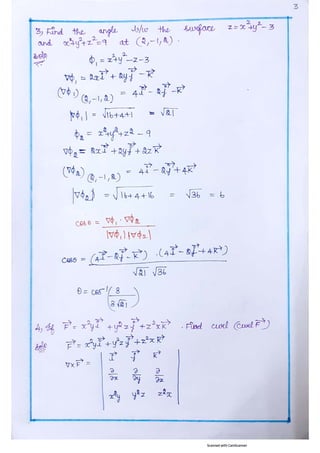 3
3, Find the angle b/w the surface z=x²+y²-3
and x²+y²+z²=9 at (2,-1,2).
Soln
φ₁ = x²+y²-z-3
∇φ₁ = 2xi⃗ + 2yj⃗ - k⃗
(∇φ₁)(2,-1,2) = 4i⃗ - 2j⃗ - k⃗
|∇φ₁| = √16+4+1 = √21
φ₂ = x²+y²+z² - 9
∇φ₂ = 2xi⃗ + 2yj⃗ + 2zk⃗
(∇φ₂)(2,-1,2) = 4i⃗ - 2j⃗ + 4k⃗
|∇φ₂| = √16+4+16 = √36 = 6
cosθ = ∇φ₁ · ∇φ₂ / |∇φ₁||∇φ₂|
cosθ = (4i⃗ - 2j⃗ - k⃗) · (4i⃗ - 2j⃗ + 4k⃗) / √21 √36
θ = cos⁻¹(8 / 3√21)
4, If F⃗ = x²yi⃗ + y²zj⃗ + z²xk⃗ . Find curl (curl F⃗)
Soln
F⃗ = x²yi⃗ + y²zj⃗ + z²xk⃗
∇×F⃗ = | i⃗ j⃗ k⃗
∂/∂x ∂/∂y ∂/∂z
x²y y²z z²x |
Scanned with CamScanner